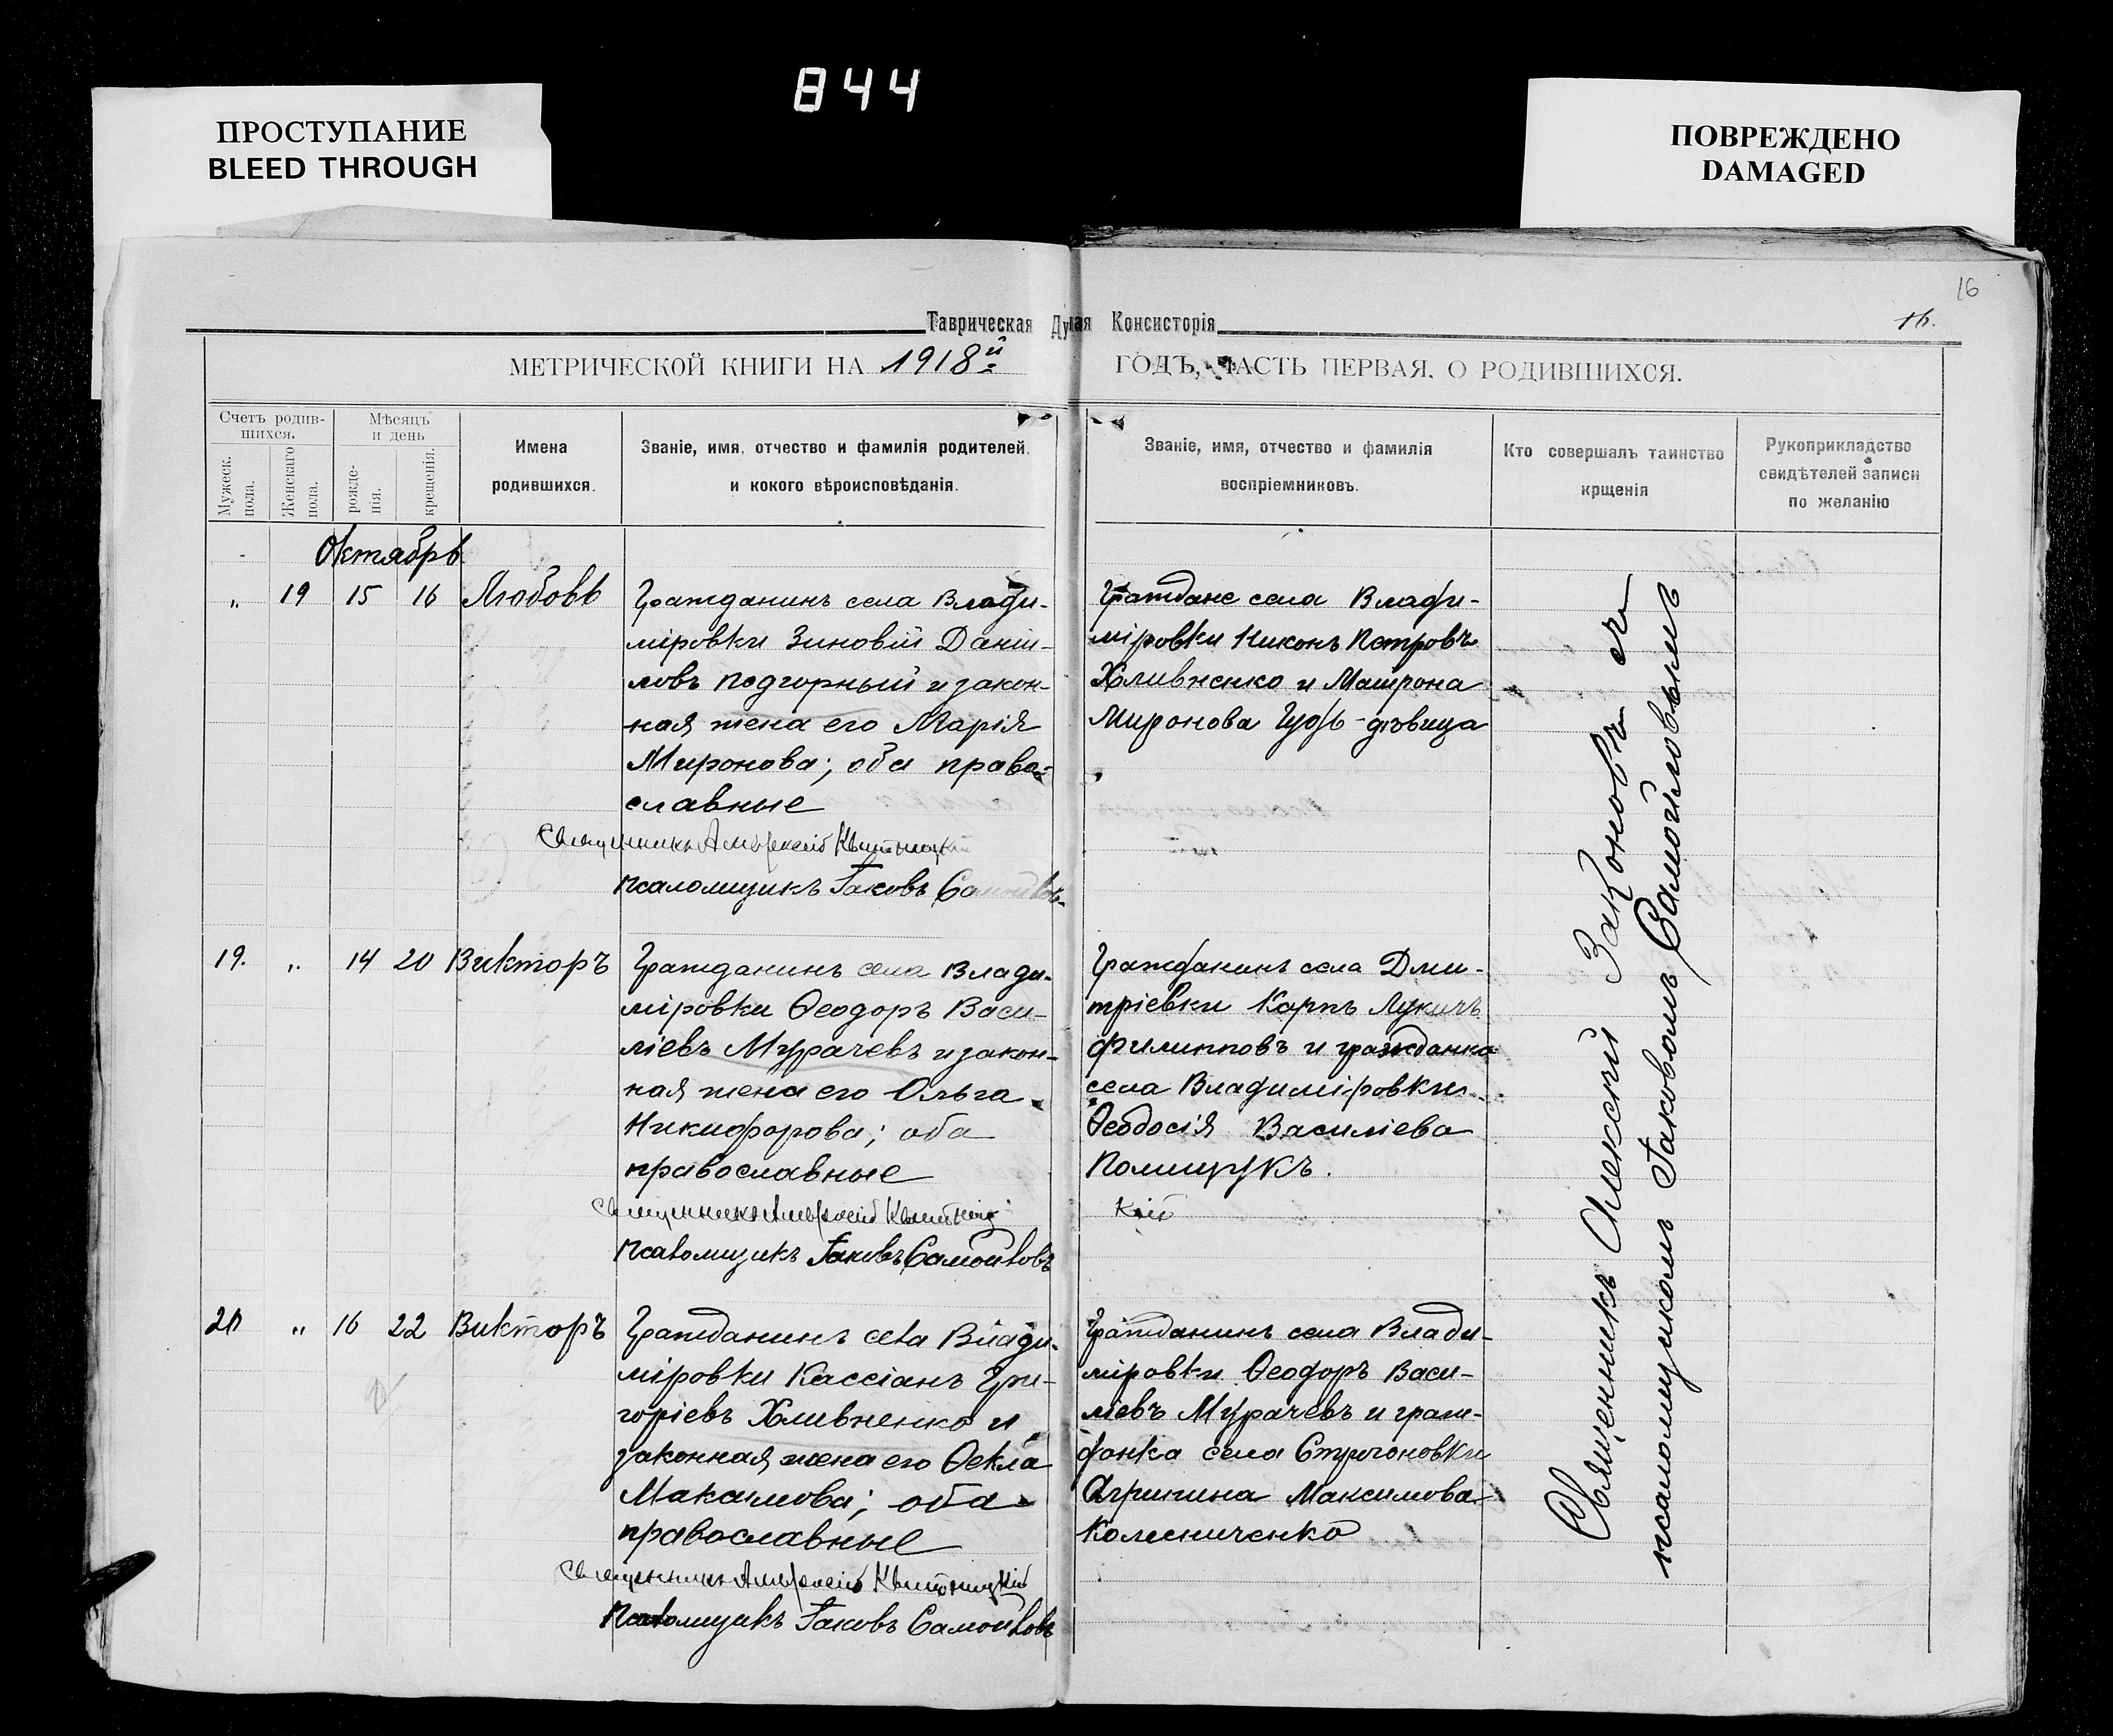 844
ПРОСТУПАНИЕ
BLEED THROUGH
ПОВРЕЖДЕНО
DAMAGED
16
16.
Таврическая Ду ная Консисторія
МЕТРИЧЕСКОЙ КНИГИ НА 1918й ГОДЪ, ЧАСТЬ ПЕРВАЯ, О РОДИВШИХСЯ.
Счетъ родив-
шихся.
Мужеск.
пола.
Женскаго
пола.
Мѣсяцъ
и день
рожде-
нія.
крещенія.
Имена
родившихся.
Званіе, имя, отчество и фамилія родителей,
и кокого вѣроисповѣданія.
Званіе, имя, отчество и фамилія
воспріемниковъ.
Кто совершалъ таинство
крщенія
Рукоприкладство
свидѣтелей записи
по желанію
Октябрь
„ 19 15 16 Любовь
Гражданинъ села Влади-
міровки Зиновій Даніи-
ловъ Подгорный и закон-
ная жена его Марія
Миронова; оба право-
славные
Священникъ Амвросій Квитницкій
Псаломщикъ Іаковъ Самойловъ
Граждане села Влади-
міровки Никонъ Петровъ
Хливненко и Матрона
Миронова Губь-дѣвица
19. „ 14 20 Викторъ
Гражданинъ села Влади-
міровки Ѳеодоръ Васи-
ліевъ Мурачевъ и закон-
ная жена его Ольга
Никифорова; оба
православные
Священникъ Амвросій Квитниц
кій
Псаломщикъ Іаковъ Самойловъ
Гражданинъ села Дми-
тріевки Карпъ Лукичъ
Филипповъ и гражданка
села Владиміровки
Ѳеодосія Василіева
Полищукъ.
20 „ 16 22 Викторъ
Гражданинъ села Влади-
міровки Кассіанъ Гри-
горіевъ Хливненко и
законная жена его Ѳекла
Макаимова; оба
православные
Священникъ Амвросій Квитницкій
Псаломщикъ Іаковъ Самойловъ
Гражданинъ села Влади-
міровки Ѳеодоръ Васи-
ліевъ Мурачевъ и граж-
данка села Стригоновки
Агрипина Максимова
Колесниченко
Священникъ Алексій Законовъ съ
псаломщикомъ Іаковомъ Самойловымъ